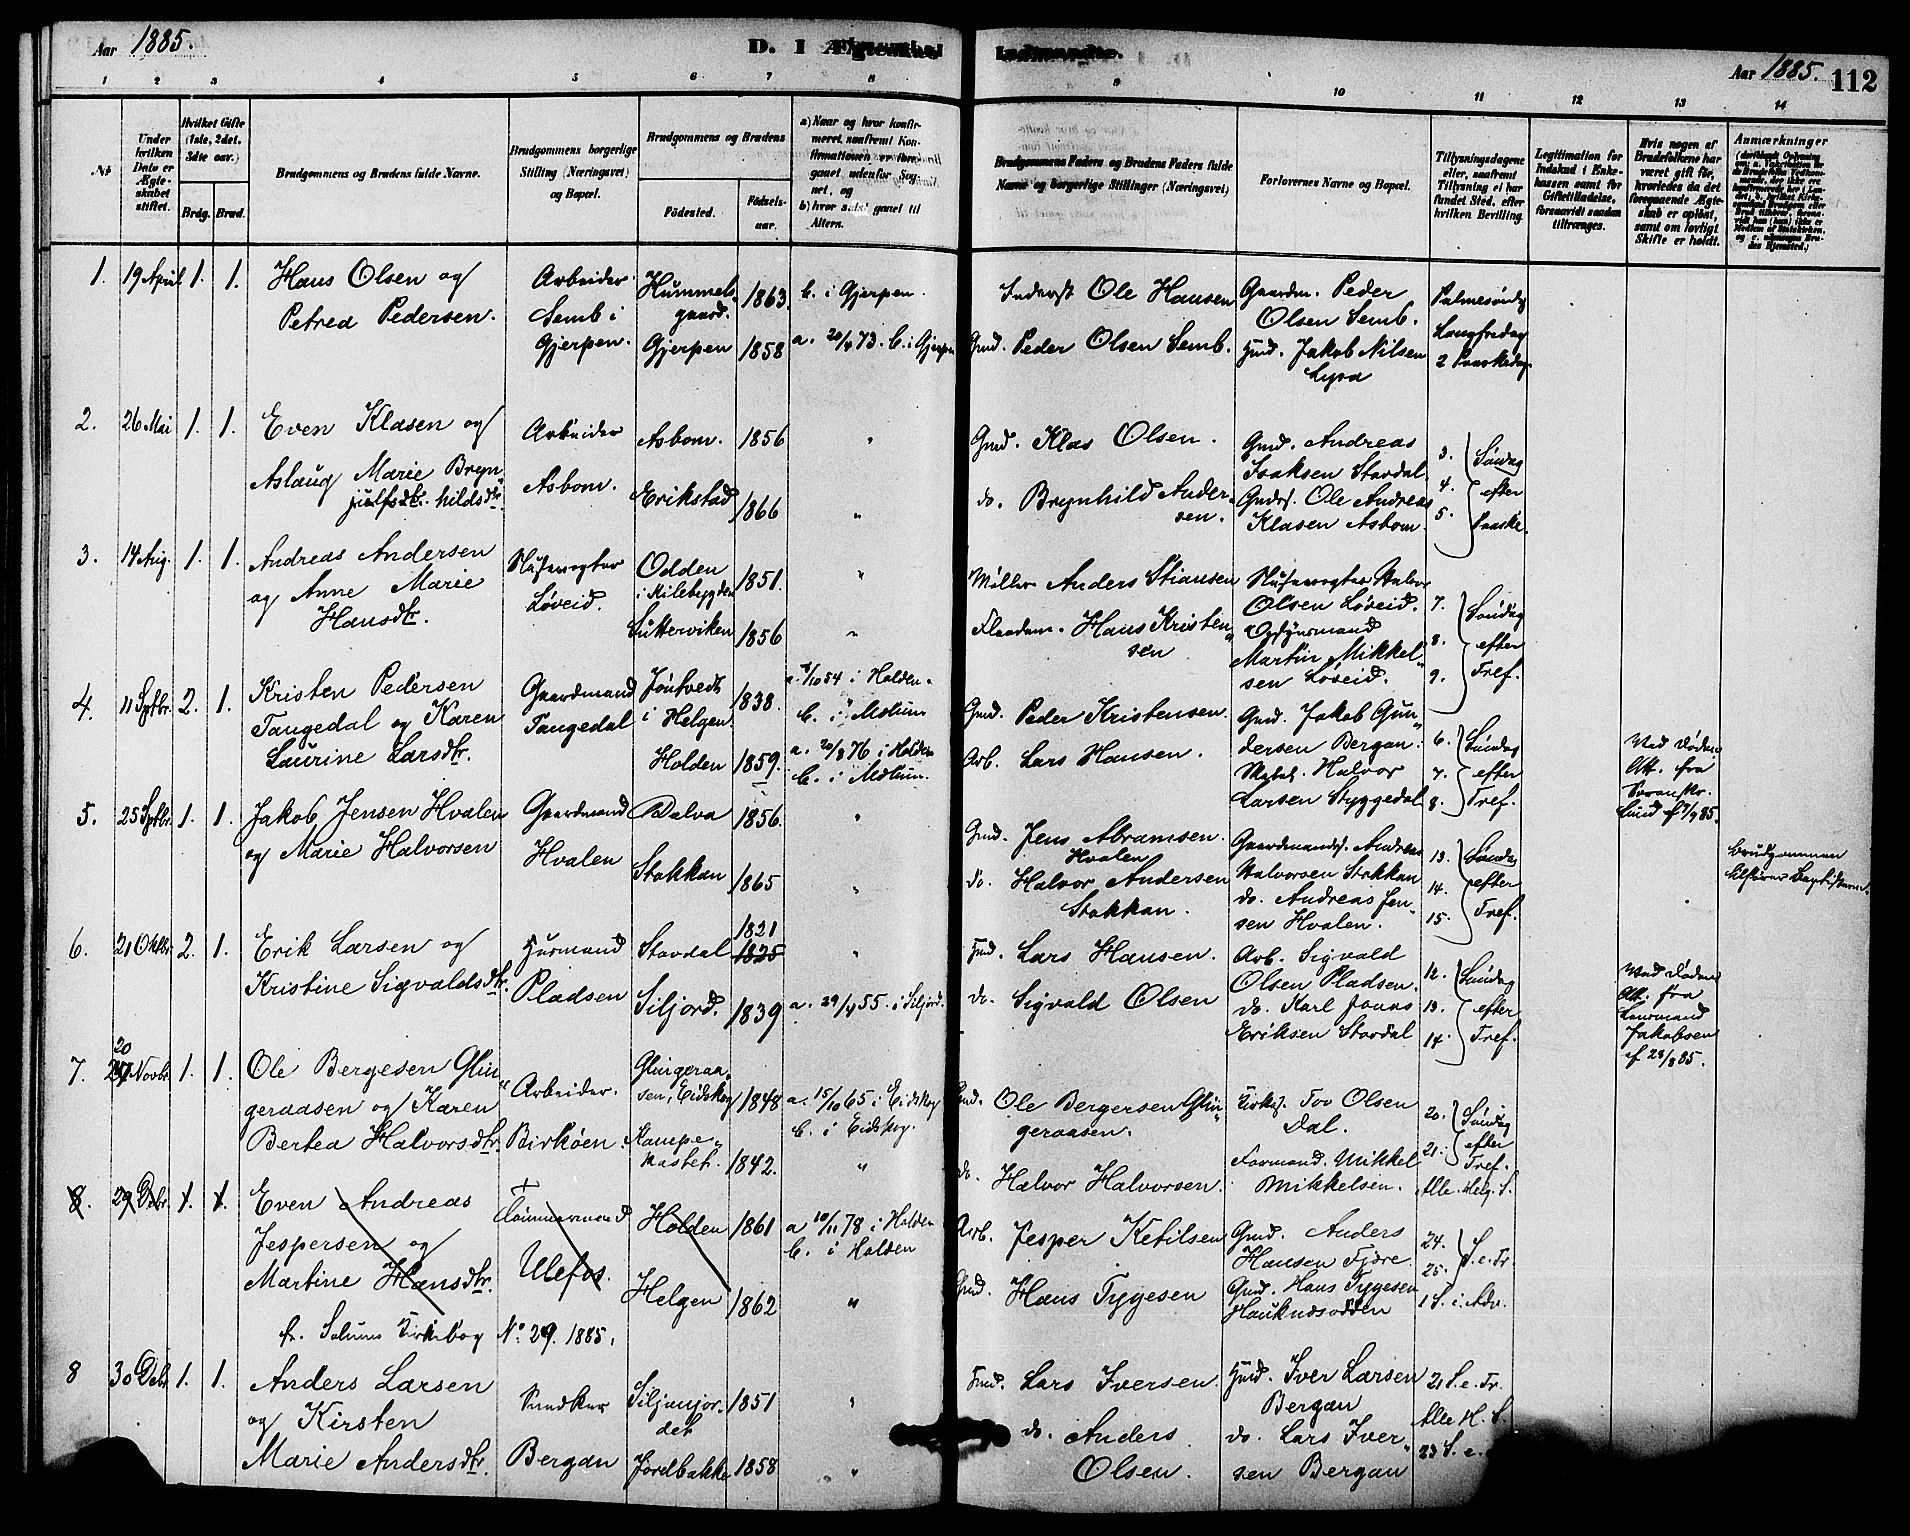 Aar 1885.
D. I Ægteskab
Indtraadte.
Aar 1885. 112
1 2 3 4 5 6 7 8 9 10 11 12 13 14
Nr
Under hvilken Dato er Ægteskabet stiftet.
Hvilket Gifte (1ste, 2det, 3die osv.)
Brdg. Brud.
Brudgommens og Brudens fulde Navne.
Brudgommens borgerlige Stilling (Næringsvei) og Bopæl.
Brudgommens og Brudens
Fødested. Fødselsaar.
a) Naar og hvor konfirmeret, saafremt Konfirmationen er foregaaet udenfor Sognet, og
b) hvor sidst gaaet til Alters.
Brudgommens Faders og Brudens Faders fulde Navne og borgerlige Stillinger (Næringsvei)
Forlovernes Navne og Bopæl.
Tillysningsdagene eller, saafremt Tillysning ei har fundet Sted, efter hvilken Bevilling.
Legitimation for Indskud i Enkekassen samt for Giftetilladelse, forsaavidt saadan tiltrænges.
Hvis nogen af Brudefolkene har været gift før, hvorledes da det foregaaende Ægteskab er opløst, samt om lovligt Skifte er holdt.
Anmærkninger
1. 19 April 1. 1. Hans Olsen og
Petrea Pedersen.
Arbeider
Semb i
Gjerpen.
Hummelsgaard. 1863. b. i Gjerpen.
Gjerpen 1858 a. 20/4 73. b. i Gjerpen
Inderst Ole Hansen
Gmd. Peder Olsen Semb.
Gaardm. Peder
Olsen Semb.
Hmd. Jakob Nilsen
Lysa
Palmesøndg
Langfredag
2 Paaskedag.
2. 26 Mai 1. 1. Even Klasen og
Aslaug Marie Bryn"
julfsdtr. hildsdtr.
Arbeider
Asbom.
Asbom. 1856 "
Erikstad 1866 "
Gmd. Klas Olsen.
do. Brynhild Andersen.
Gmd. Andreas
Isaksen Stordal
Gmds. Ole Andreas
Klasen Asbom.
3. 4. 5. Søndag efter Paaske.
3. 14 Aug. 1. 1. Andreas Andersen
og Anne Marie
Hansdtr.
Slusevogter
Løveid.
Odden
i Milebygden 1851. "
Sutterviken 1856 "
Møller Anders Stiansen
Flaadem. Hans Kristen"
sen
Slusevogter Halvor
Olsen Løveid.
Opsynsmand
Martin Mikkel"
sen Løveid.
7. 8. 9. Søndag efter Tref.
4. 11 Sptbr. 2. 1. Kristen Pedersen
Tangedal og Karen
Laurine Larsdtr.
Gaardmand
Tangedal
Jøntvedt
i Helgen. 1838. /10 54 i Holden.
b. i Mælum
Holden 1859. a. 20/8 76 i Holden
b. i Mælum.
Gmd. Peder Kristensen.
Arb. Lars Hansen.
Gmd. Jakob Gun"
dersen Bergan.
Halvor
Larsen Styggedal
6. 7. 8. Søndag efter Tref.
Ved Døden
Att. fra
Lund af 7/9 85.
5. 25 Sptbr. 1. 1. Jakob Jensen Hvalen
og Marie Halvorsen
Gaardmand
Hvalen
Dalva 1856. "
Stokkan 1865 "
Gmd. Jens Abramsen
Hvalen
do. Halvor Andersen
Stokkan.
Gaardmands. Andreas
Halvorsen Stokkan
do. Andreas Jen"
sen Hvalen.
13. 14. 15. Søndag efter Tref.
Brudgommen
tilhører Baptisterne.
6. 21 Oktbr. 2. 1. Erik Larsen og
Kristine Sigvaldsdtr.
Husmand
Pladsen
Stordal 1821 1825 "
Siljord. 1839 a. 29/4 55. i Siljord.
Hmd. Lars Hansen.
do. Sigvald Olsen
Arb. Sigvald
Olsen Pladsen.
do. Karl Jonas
Eriksen Stordal
12. 13. 14. Søndag efter Tref.
Ved Døden
Att. fra
Lensmand
Jakobsen
af 28/8 85.
7. 20 Novbr. 1. 1. Ole Bergesen Glin"
geraasen og Karen
Bertea Halvorsdtr.
Arbeider.
Birkøen.
Glingeraa"
sen, Eidskog 1848 a. 15/10 65 i Eidskog
b. i Eidskog.
Kampe"
kastet. 1842. "
Gmd. Ole Bergersen Glin"
geraasen.
do. Halvor Halvorsen.
Kirkes. Tov Olsen
Dal.
Formand. Mikkel
Mikkelsen.
20. 21. Søndag efter Tref.
Alle Helg. S.
8. 29 Debr. 1. 1. Even Andreas
Jespersen og
Martine Hansdtr.
Tømmermand
Ulefos.
Holden 1861 a 10/11 78 i Holden
b. i Holden
Helgen 1862 "
fr. Solums Kirkebog No. 29. 1885.
Arb. Jesper Ketilsen
Gmd. Hans Tygesen
Gmd. Anders
Hansen Fjære.
Gmd. Hans Tygesen
Hauknæsodden
24. 25. S. e. Tr.
1 S. i. Adv.
8 30 Debr. 1. 1. Anders Larsen
og Kirsten
Marie Andersdtr.
Snedker
Bergan
Siljanjor"
det 1851 "
Jordbakke 1858 "
Hmd. Lars Iversen.
do. Anders
Olsen.
Hmd. Iver Larsen
Bergan
do. Lars Iver"
sen Bergan
21 S. e. Tr.
Alle H. S.
23 S. e.